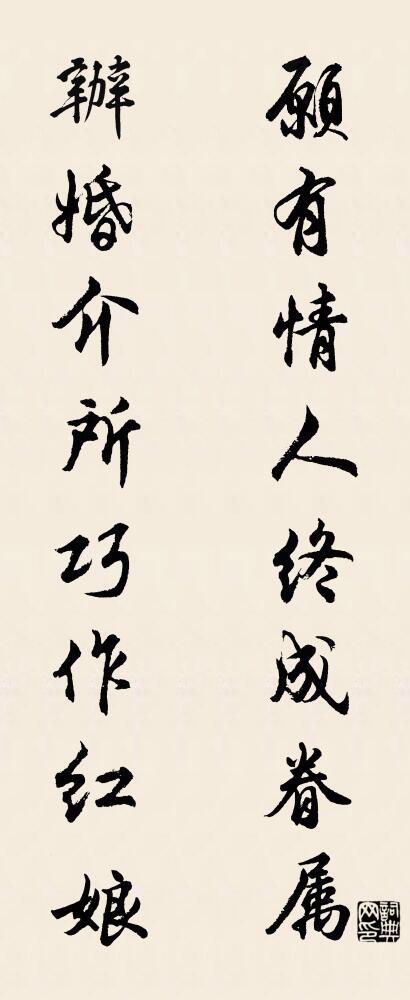 願有情人终成眷属
辦婚介所巧作红娘
詞典网印